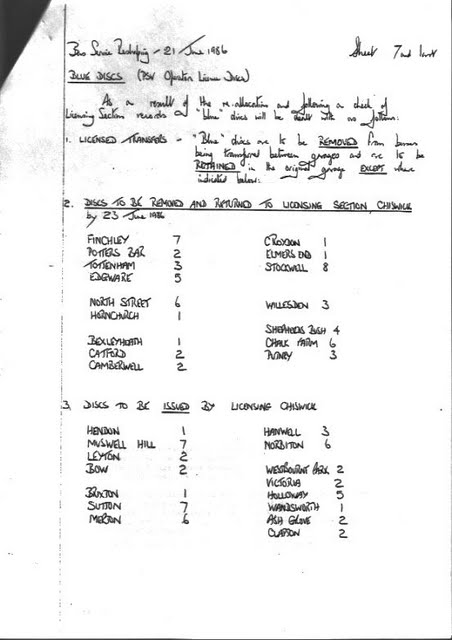 Bus Service Reshaping - 21 June 1986 Sheet 7 and last
BLUE DISCS (PSV Operator Licence Discs)
As a result of the re-allocation and following a check of
Licensing Section records "blue" discs will be dealt with as follows:
1. LICENSED TRANSFERS - "Blue" discs are to be REMOVED from buses
being transferred between garages and are to be
RETAINED in the original garage EXCEPT where
indicated below:
2. DISCS TO BE REMOVED AND RETURNED TO LICENSING SECTION, CHISWICK
by 23 June 1986
FINCHLEY 7 CROYDON 1
POTTERS BAR 2 ELMERS END 1
TOTTENHAM 3 STOCKWELL 8
EDGWARE 5
NORTH STREET 6 WILLESDEN 3
HORNCHURCH 1
SHEPHERDS BUSH 4
BEXLEYHEATH 1 CHALK FARM 6
CATFORD 2 PUTNEY 3
CAMBERWELL 2
3. DISCS TO BE ISSUED BY LICENSING CHISWICK
HENDON 1 HANWELL 3
MUSWELL HILL 7 NORBITON 6
LEYTON 2
BOW 2 WESTBOURNE PARK 2
VICTORIA 2
BRIXTON 1 HOLLOWAY 5
SUTTON 7 WANDSWORTH 1
MERTON 6 ASH GROVE 2
CLAPTON 2